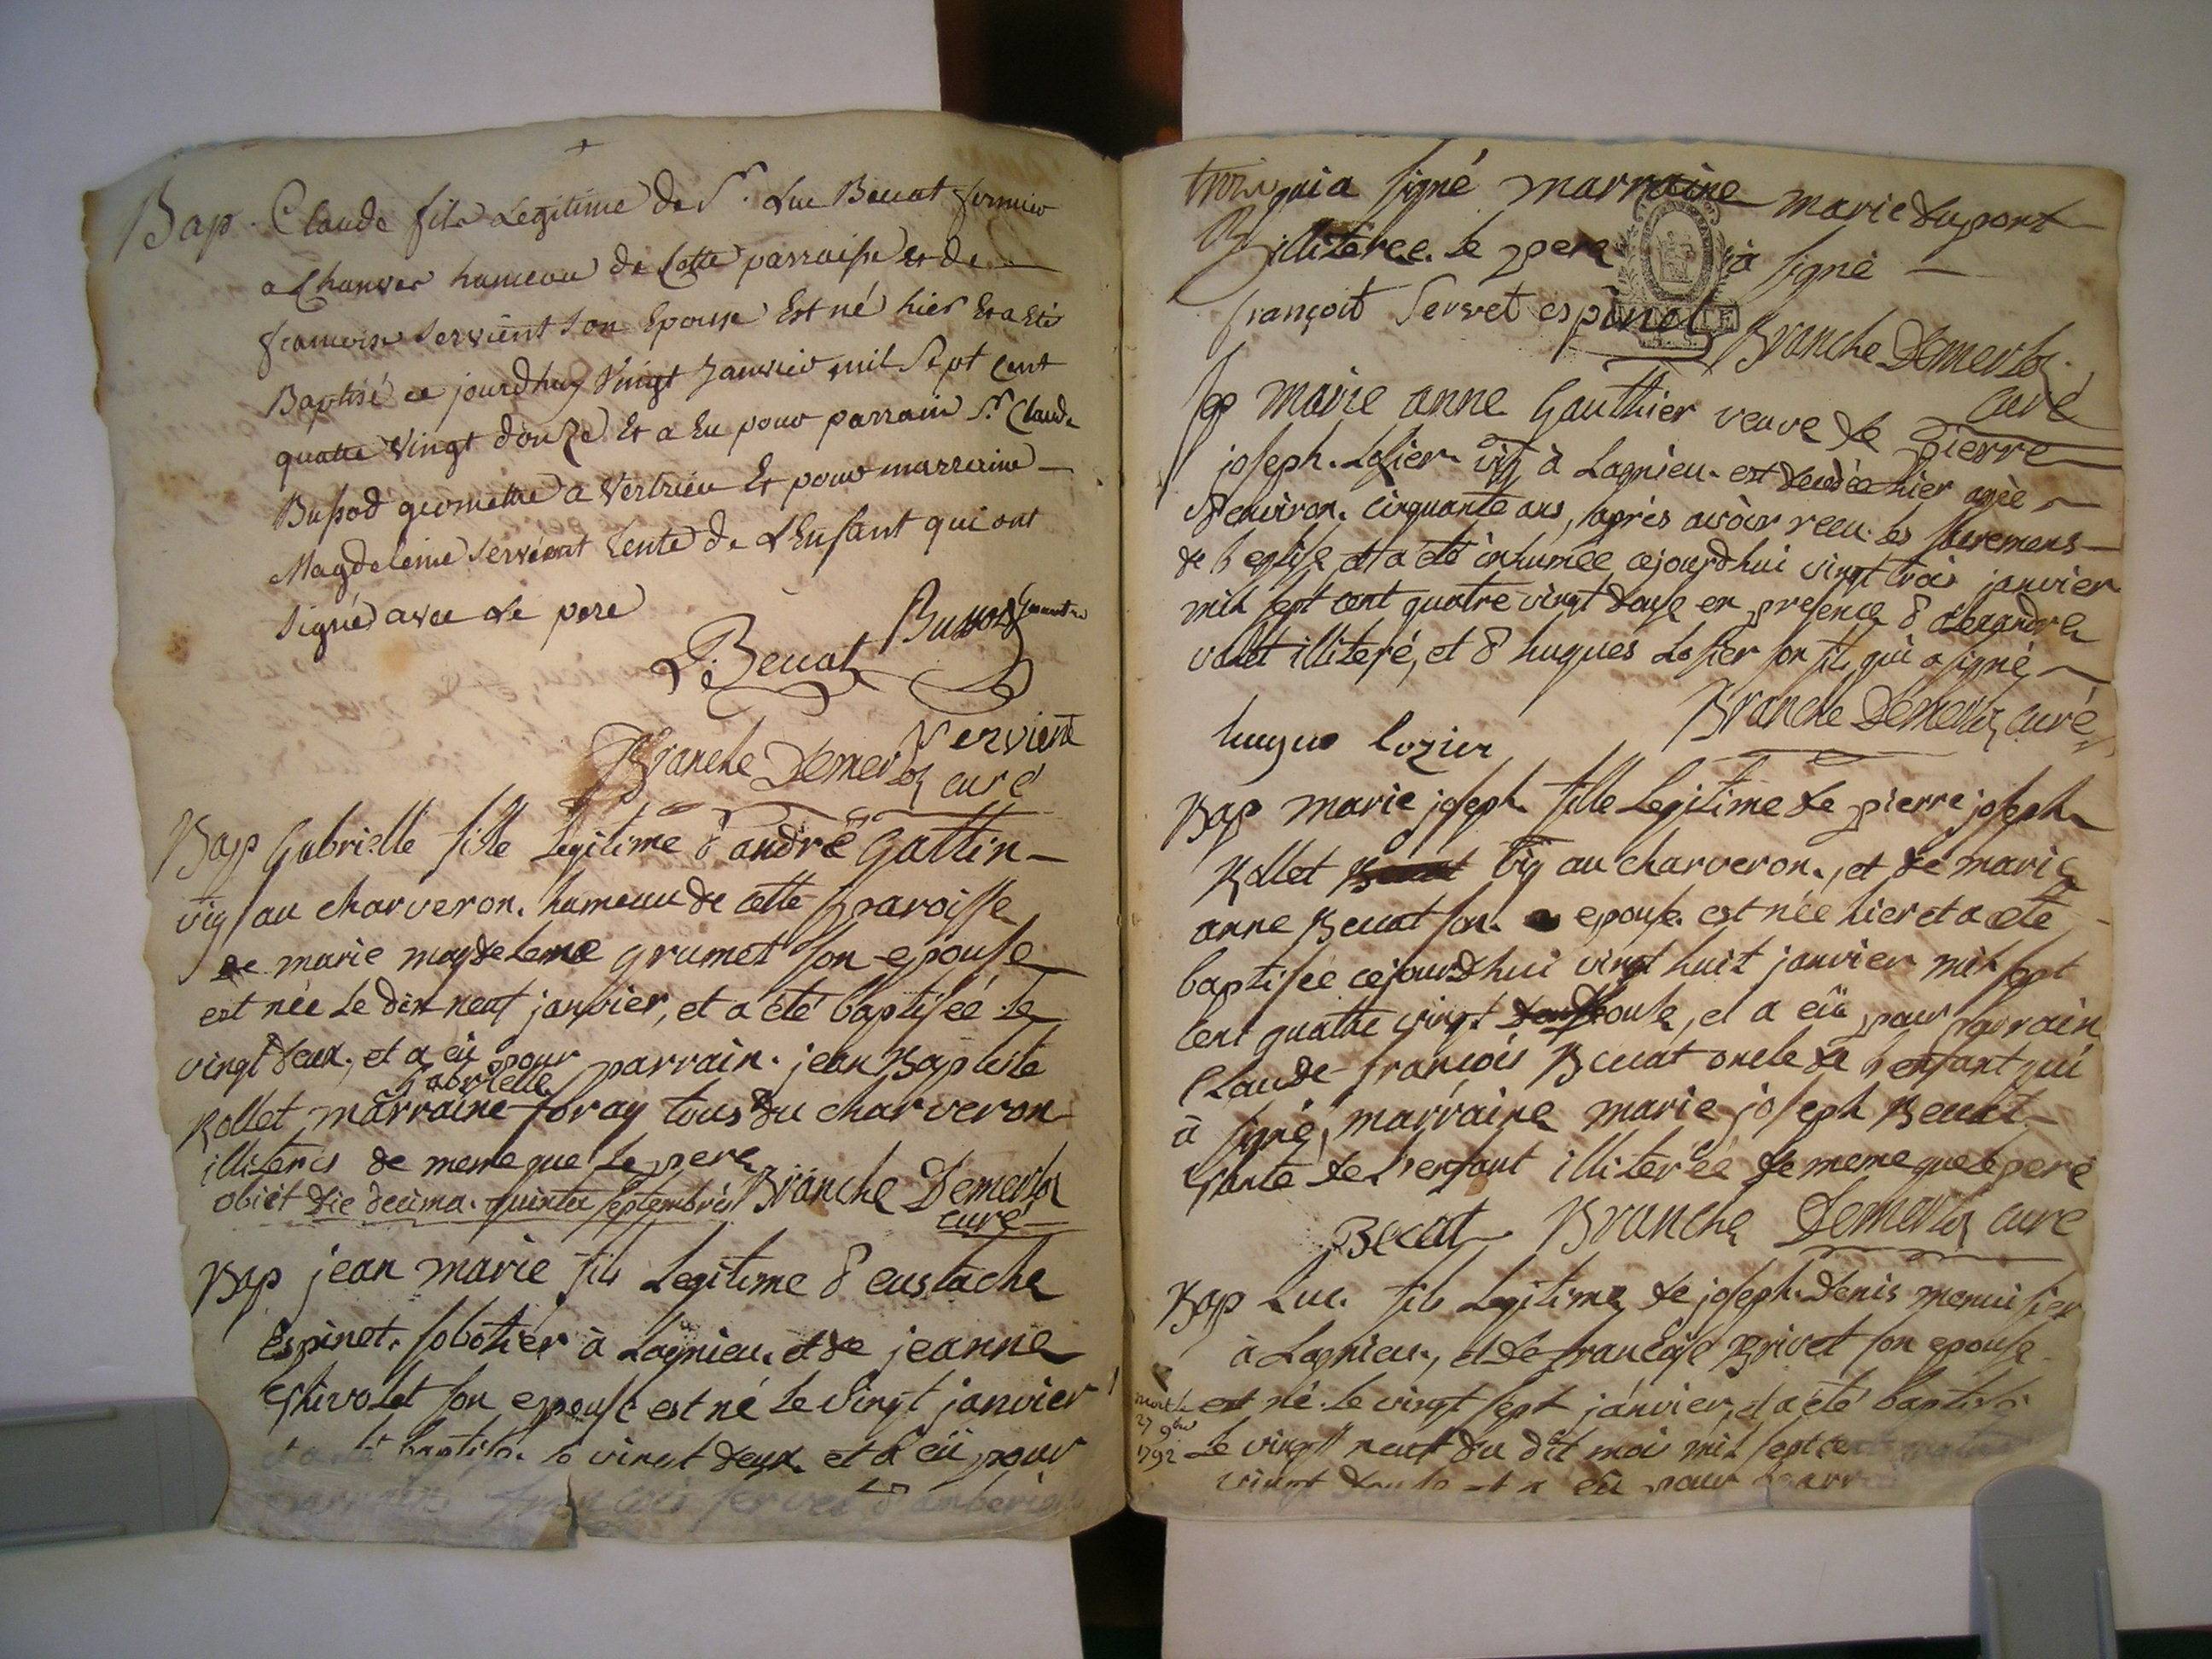 Bap. Claude fils Legitime de Sr. Luc Becuat fermier
a Chanves hameau de Cette parroisse et de
francoise Servient son Epouse Est né hier Et a Eté
Baptisé ce jourdhuy Vingt Janvier mil Sept Cent
quatre Vingt douze Et a Eu pour parrain Sr. Claude
Bussod geometre a Vertrieu Et pour marreine
Magdeleine Servient tente de L'Enfant qui ont
Signé avec Le pere
L. Becuat Bussod geometre
Servient
Branche Demerloz curé
Bap Gabrielle fille Legitime d'andré Gattin
vig au charveron. hameau de cette paroisse
de marie magdeleine grumet son epouse
est née le dix neuf janvier, et a été baptisée le
vingt deux, et a eü pour parrain. jean Baptiste
gabrielle
Rollet marraine foray tous du charveron
illiterés de meme que le pere
obiit die decima. quinta septembris Branche Demerloz
curé
Bap jean marie fils Legitime d'eustache
espinet. sabotier à Lagnieu. et de jeanne
Chivolet son epouse est né le vingt janvier
et a été baptisé. le vingt deux et a eü pour
parrain françois servet d'amberieu
qui a signé marraine marie dupont
illiterée. le pere a signé
françoit Servet espinet
Branche Demerloz.
curé
Sep marie anne Gauthier veuve de pierre
joseph. Losier. vig à Lagnieu. est decedée hier agée
d'environ. cinquante ans, après avoir recu. les sacremens
de l'eglise et a été inhumée cejourdhui vingt trois janvier
mil sept cent quatre vingt douse en presence d'alexandre
valet illiteré, et d'hugues Losier son fils qui a signé
hugue lozier Branche Demerloz curé
Bap marie joseph fille Legitime de pierre joseph
Rollet vig au charveron., et de marie
anne Becuat son. epouse. est née hier et a eté
baptisée cejourdhui vingt huit janvier mil sept
cent quatre vingt douse, et a eü pour parrain
Claude françois Becuat oncle de l'enfant qui
à signé, marraine marie joseph Becuat
tante de l'enfant illiterée de meme que le pere
Becuat Branche Demerloz curé
Bap Luc. fils Legitime de joseph. Denis menuisier
à Lagnieu., et de françoise Brivet son epouse
mort le
27 9bre
1792
est né. le vingt sept janvier, et a été baptisé
Le vingt neuf du dit mois mil sept cent
vingt douse et a eü pour parr